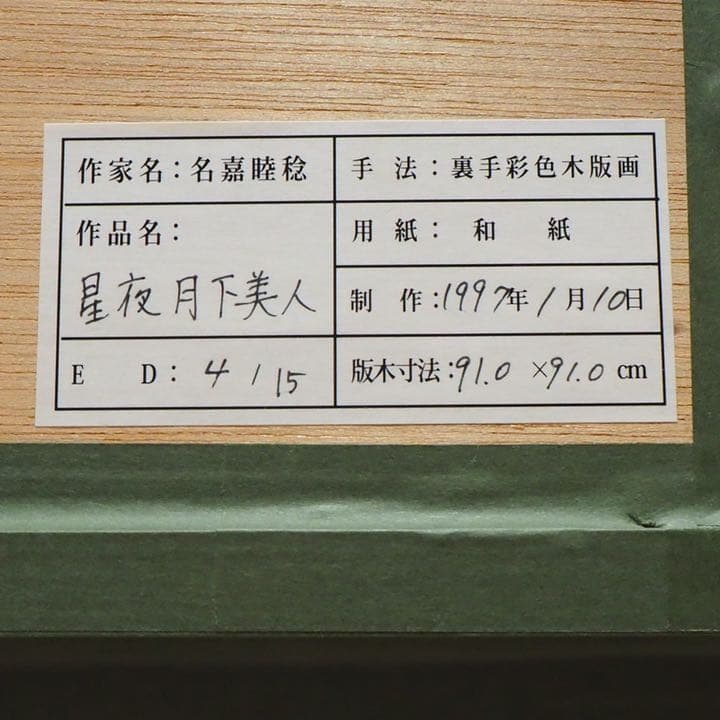 作家名：名嘉睦稔
作品名：
星夜月下美人
E D： 4 / 15
手 法：裏手彩色木版画
用 紙： 和 紙
制 作：1997年 1月10日
版木寸法：91.0 ×91.0 cm